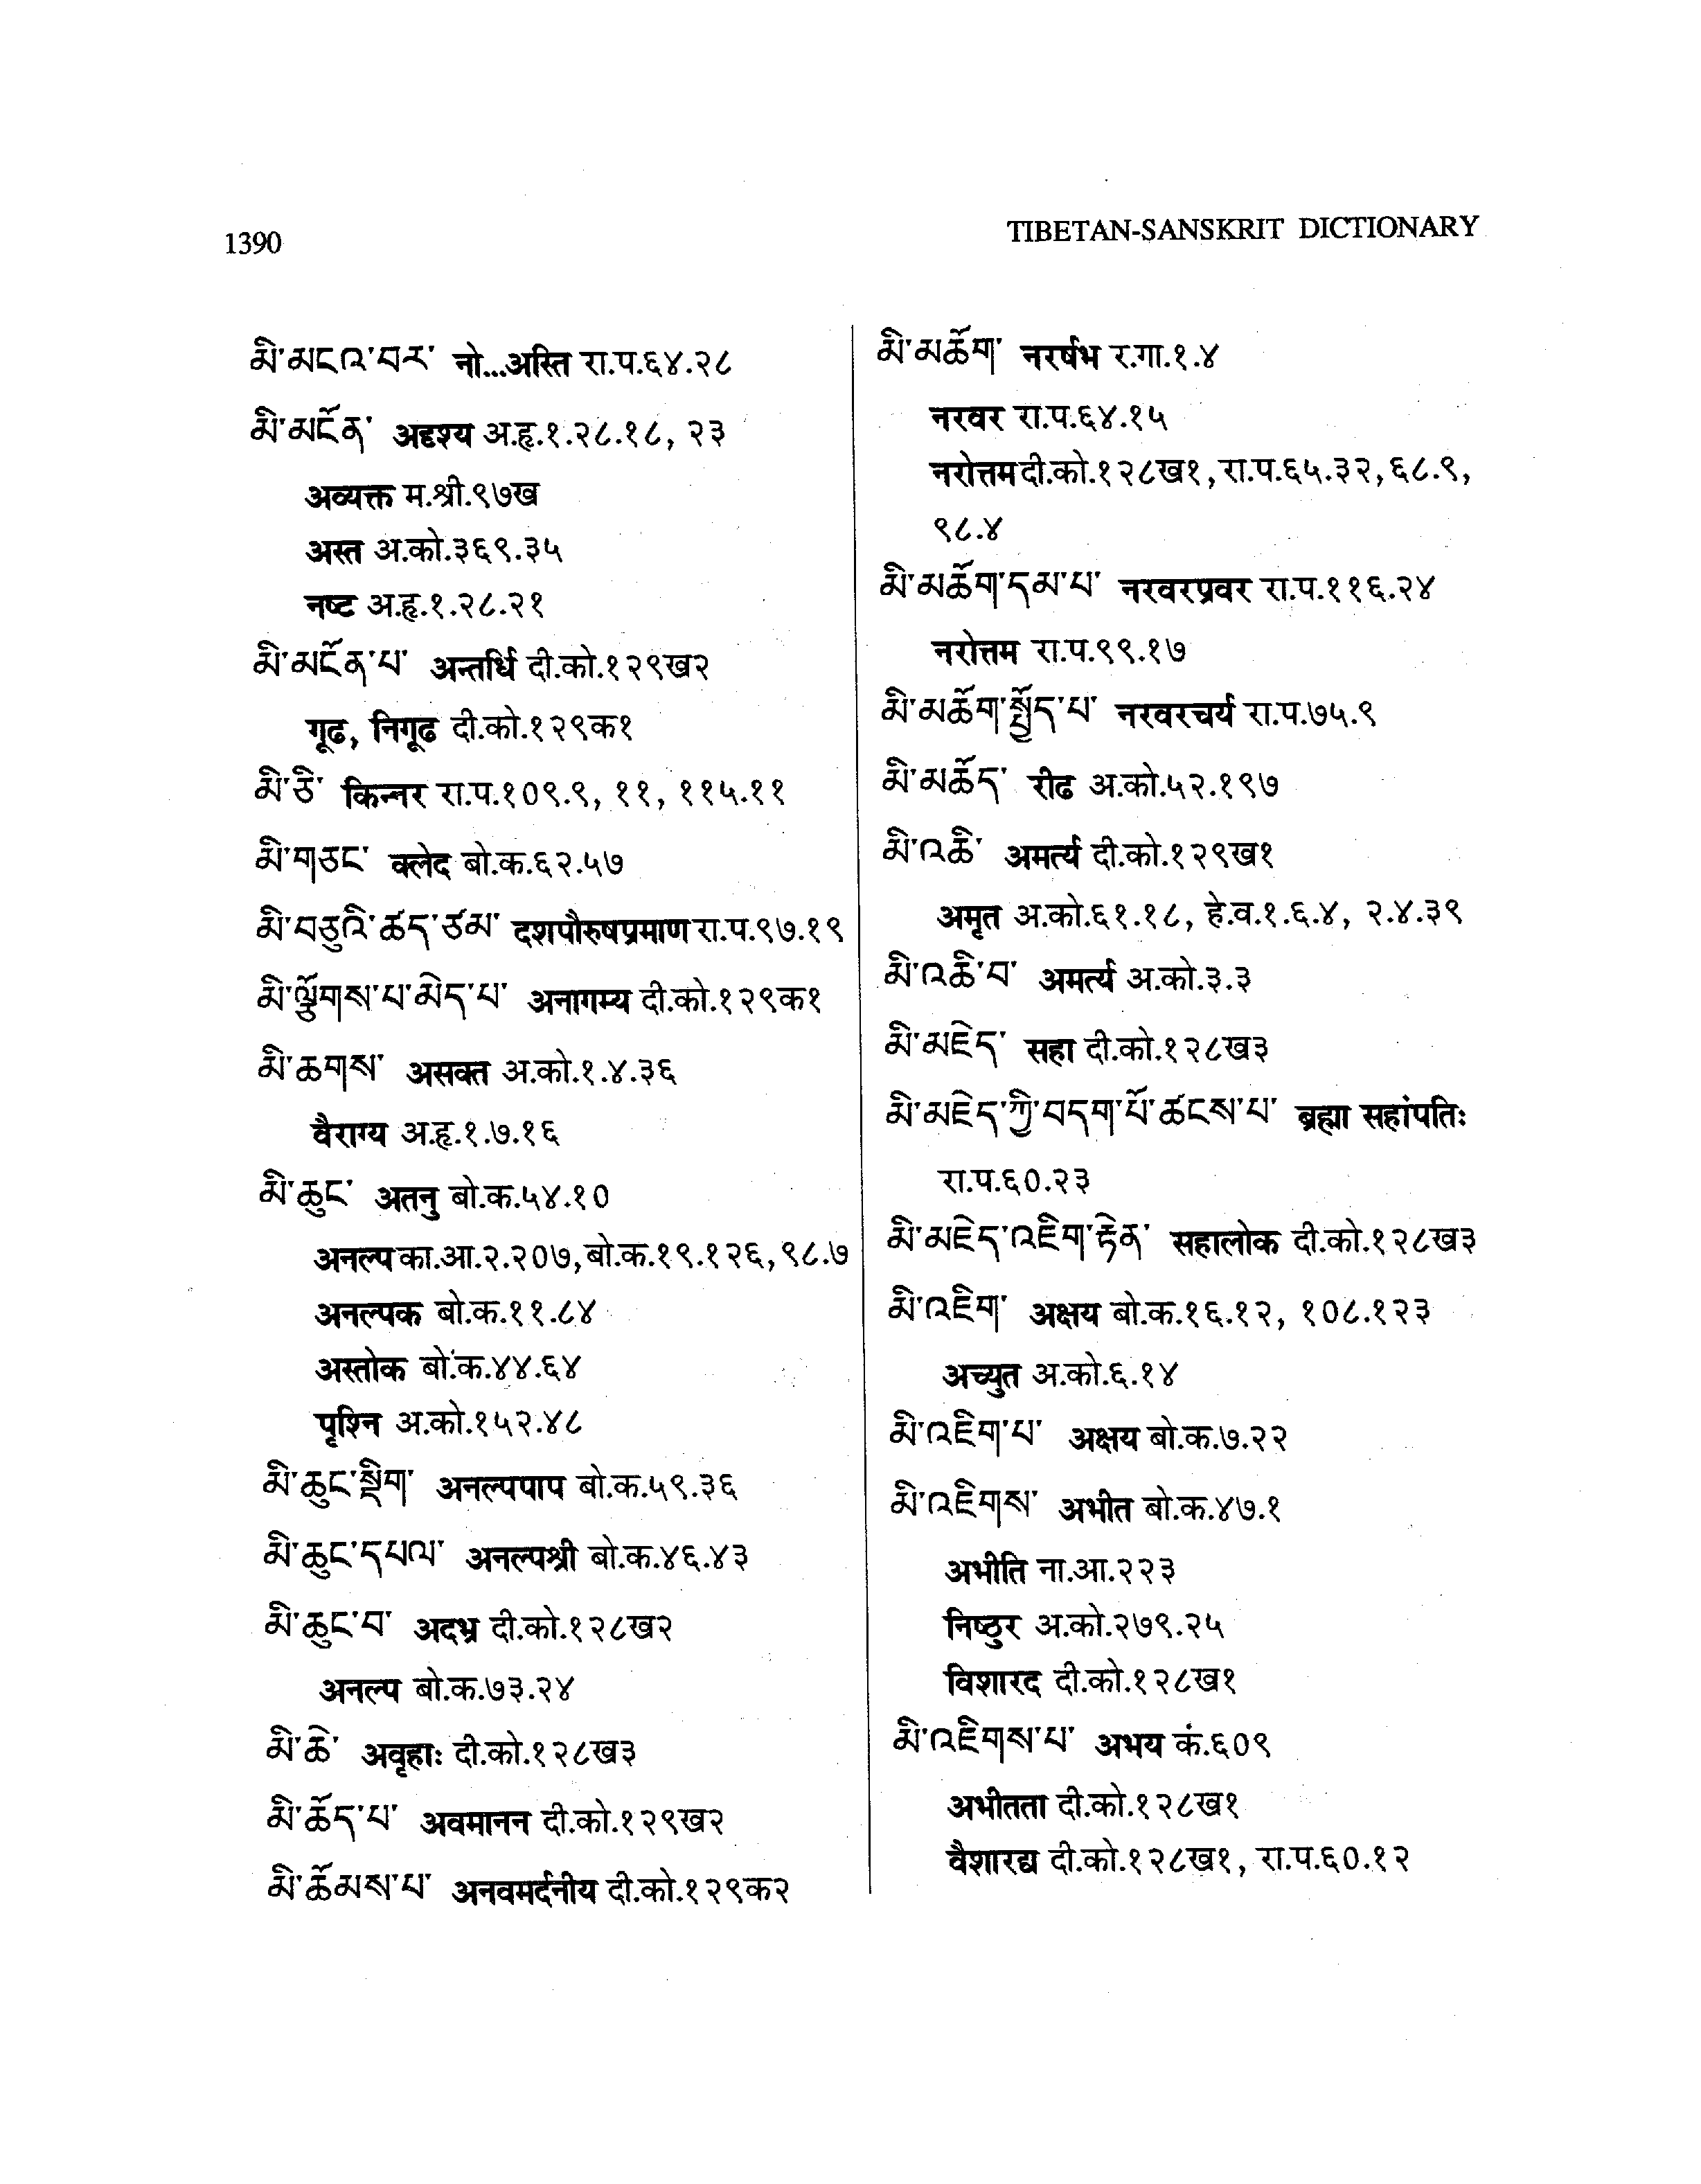 1390
TIBETAN-SANSKRIT DICTIONARY
མི་མངའ་བར་ नो...अस्ति रा.प.६४.२८
མི་མངོན་ अदृश्य अ.हृ.१.२८.१८, २३
अव्यक्त म.श्री.९७ख
अस्त अ.को.३६९.३५
नष्ट अ.हृ.१.२८.२१
མི་མངོན་པ་ अन्तर्धि दी.को.१२९ख२
गूढ, निगूढ दी.को.१२९क१
མི་ཅི་ किन्नर रा.प.१०९.९, ११, ११५.११
མི་གཙང་ क्लेद बो.क.६२.५७
མི་བཅུའི་ཚད་ཙམ་ दशपौरुषप्रमाण रा.प.९७.१९
མི་ལྕོགས་པ་མེད་པ་ अनागम्य दी.को.१२९क१
མི་ཆགས་ असक्त अ.को.१.४.३६
वैराग्य अ.हृ.१.७.१६
མི་ཆུང་ अतनु बो.क.५४.१०
अनल्प का.आ.२.२०७, बो.क.१९.१२६, ९८.७
अनल्पक बो.क.११.८४
अस्तोक बो.क.४४.६४
पृश्नि अ.को.१५२.४८
མི་ཆུང་སྡིག་ अनल्पपाप बो.क.५९.३६
མི་ཆུང་དཔལ་ अनल्पश्री बो.क.४६.४३
མི་ཆུང་བ་ अदभ्र दी.को.१२८ख२
अनल्प बो.क.७३.२४
མི་ཆེ་ अवृहाः दी.को.१२८ख३
མི་ཆོད་པ་ अवमानन दी.को.१२९ख२
མི་ཆོམས་པ་ अनवमर्दनीय दी.को.१२९क२
མི་མཆོག་ नरर्षभ र.गा.१.४
नरवर रा.प.६४.१५
नरोत्तम दी.को.१२८ख१, रा.प.६५.३२, ६८.९,
९८.४
མི་མཆོག་དམ་པ་ नरवरप्रवर रा.प.११६.२४
नरोत्तम रा.प.९९.१७
མི་མཆོག་སྤྱོད་པ་ नरवरचर्य रा.प.७५.९
མི་མཆོད་ रीढ अ.को.५२.१९७
མི་འཆི་ अमर्त्य दी.को.१२९ख१
अमृत अ.को.६१.१८, हे.व.१.६.४, २.४.३९
མི་འཆི་བ་ अमर्त्य अ.को.३.३
མི་མཇེད་ सहा दी.को.१२८ख३
མི་མཇེད་ཀྱི་བདག་པོ་ཚངས་པ་ ब्रह्मा सहांपतिः
रा.प.६०.२३
མི་མཇེད་འཇིག་རྟེན་ सहालोक दी.को.१२८ख३
མི་འཇིག་ अक्षय बो.क.१६.१२, १०८.१२३
अच्युत अ.को.६.१४
མི་འཇིག་པ་ अक्षय बो.क.७.२२
མི་འཇིགས་ अभीत बो.क.४७.१
अभीति ना.आ.२२३
निष्ठुर अ.को.२७९.२५
विशारद दी.को.१२८ख१
མི་འཇིགས་པ་ अभय कं.६०९
अभीतता दी.को.१२८ख१
वैशारद्य दी.को.१२८ख१, रा.प.६०.१२